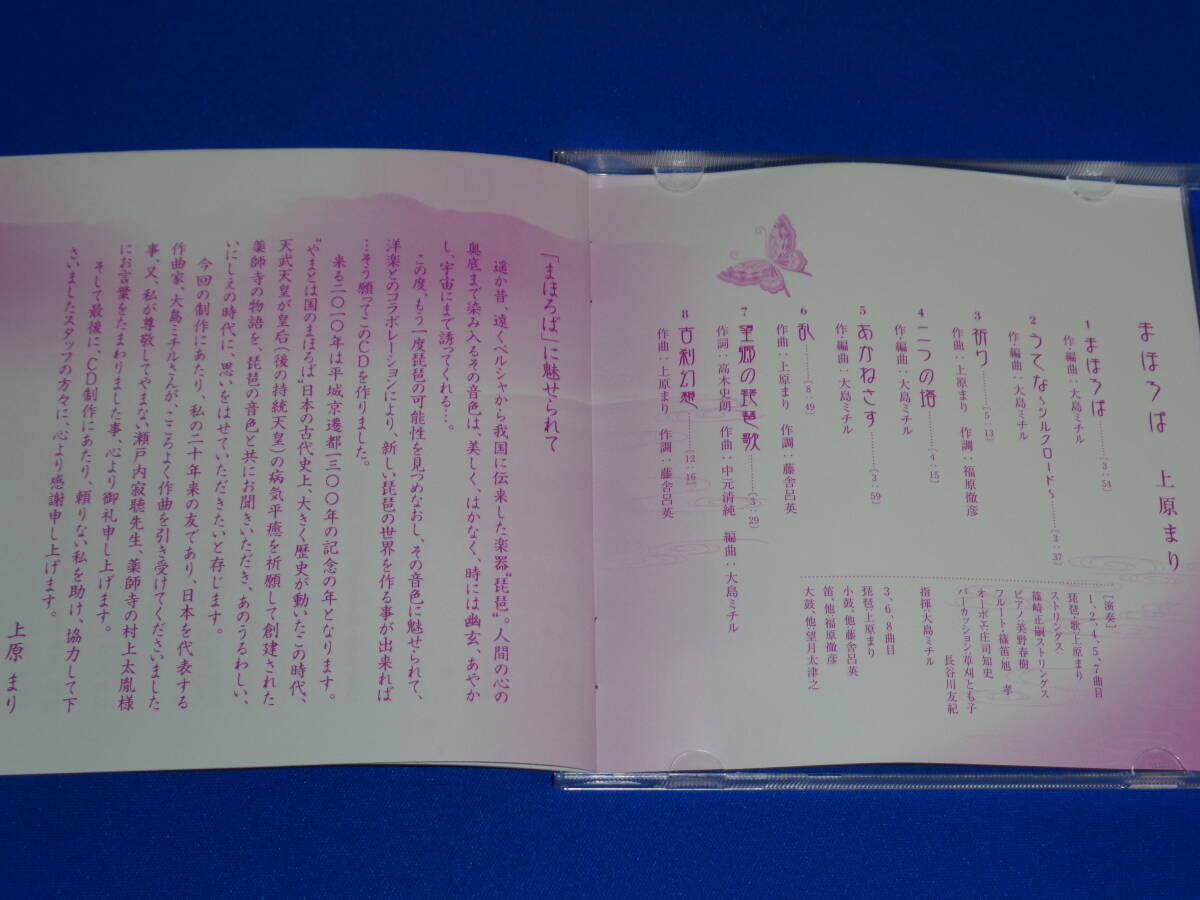 まほろば　上原まり
1 まほろば………[3:54]
作・編曲:大島ミチル
2 うてな～シルクロード～………[3:37]
作・編曲:大島ミチル
3 祈り………[5:13]
作曲:上原まり　作調:福原徹彦
4 二つの塔………[4:15]
作・編曲:大島ミチル
5 あかねさす………[3:59]
作・編曲:大島ミチル
6 乱………[8:49]
作曲:上原まり　作調:藤舎呂英
7 望郷の琵琶歌………[3:29]
作詞:高木史朗　作曲:中元清純　編曲:大島ミチル
8 古刹幻想………[12:16]
作曲:上原まり　作調:藤舎呂英
[演奏]
1、2、4、5、7曲目
琵琶・歌:上原まり
ストリングス:
篠崎正嗣ストリングス
ピアノ:美野春樹
フルート:篠笛旭　孝
オーボエ:庄司知史
パーカッション:草刈とも子
長谷川友紀
指揮:大島ミチル
3、6、8曲目
琵琶:上原まり
小鼓、他:藤舎呂英
笛、他:福原徹彦
大鼓、他:望月太津之
「まほろば」に魅せられて
遥か昔、遠くペルシャから我国に伝来した楽器“琵琶”。人間の心の
奥底まで染み入るその音色は、美しく、はかなく、時には幽玄、あやか
し、宇宙にまで誘ってくれる…。
この度、もう一度琵琶の可能性を見つめなおし、その音色に魅せられて、
洋楽とのコラボレーションにより、新しい琵琶の世界を作る事が出来れば
…そう願ってこのCDを作りました。
来る二〇一〇年は平城京遷都一三〇〇年の記念の年となります。
“やまとは国のまほろば”日本の古代史上、大きく歴史が動いたこの時代、
天武天皇が皇后(後の持統天皇)の病気平癒を祈願して創建された
薬師寺の物語を、琵琶の音色と共にお聞きいただき、あのうるわしい、
いにしえの時代に、思いをはせていただきたいと存じます。
今回の制作にあたり、私の二十年来の友であり、日本を代表する
作曲家、大島ミチルさんが、こころよく作曲を引き受けてくださいました
事、又、私が尊敬してやまない瀬戸内寂聴先生、薬師寺の村上太胤様
にお言葉をたまわりました事、心より御礼申し上げます。
そして最後に、CD制作にあたり、頼りない私を助け、協力して下
さいましたスタッフの方々に、心より感謝申し上げます。
上原まり